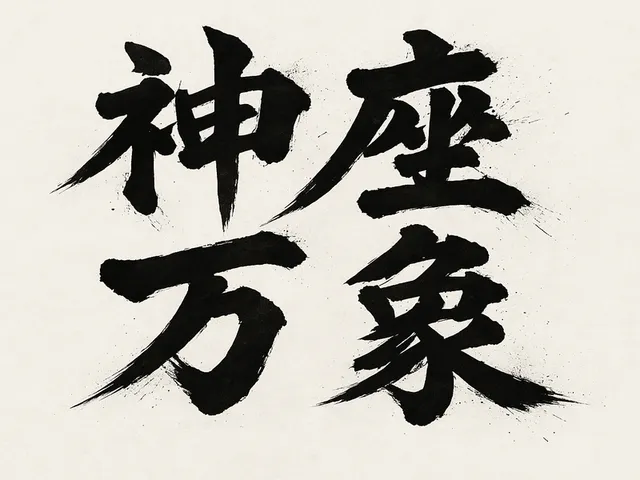 神座
万象